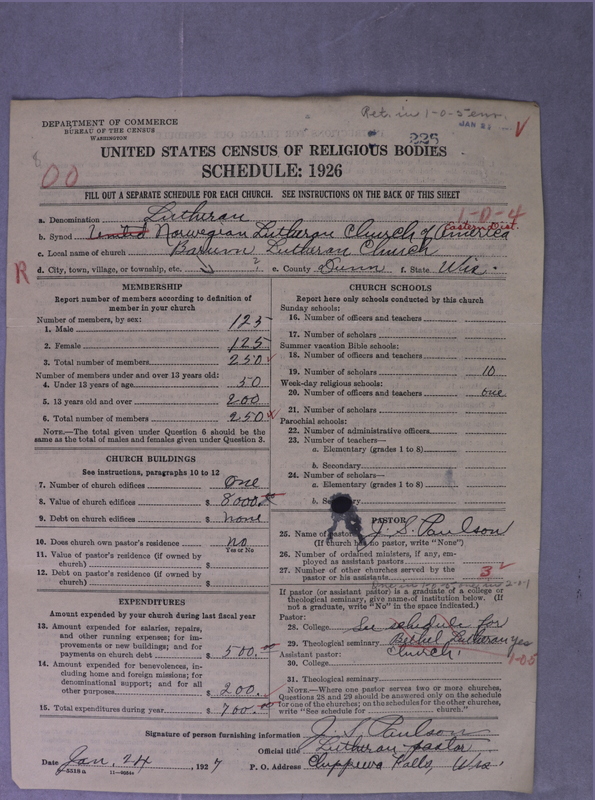 Ret. in 1-0-5 env.
DEPARTMENT OF COMMERCE
BUREAU OF THE CENSUS
WASHINGTON
JAN 2
225
UNITED STATES CENSUS OF RELIGIOUS BODIES
SCHEDULE: 1926
00
FILL OUT A SEPARATE SCHEDULE FOR EACH CHURCH. SEE INSTRUCTIONS ON THE BACK OF THIS SHEET
1-0-4
a. Denomination Lutheran
Eastern Dist.
b. Synod United Norwegian Lutheran Church of America
c. Local name of church Barum Lutheran Church
R
d. City, town, village, or township, etc. e. County Dunn f. State Wis.
MEMBERSHIP
Report number of members according to definition of
member in your church
Number of members, by sex:
1. Male 125
2. Female 125
3. Total number of members 250
Number of members under and over 13 years old:
4. Under 13 years of age 50
5. 13 years old and over 200
6. Total number of members 250
NOTE.—The total given under Question 6 should be the
same as the total of males and females given under Question 3.
CHURCH BUILDINGS
See instructions, paragraphs 10 to 12
7. Number of church edifices One
8. Value of church edifices $ 8000.
9. Debt on church edifices $ none
10. Does church own pastor's residence? no
Yes or No
11. Value of pastor's residence (if owned by
church) $
12. Debt on pastor's residence (if owned by
church) $
EXPENDITURES
Amount expended by church during last fiscal year
13. Amount expended for salaries, repairs,
and other running expenses; for im-
provements or new buildings; and for
payments on church debt $ 500.
14. Amount expended for benevolences, in-
cluding home and foreign missions; for
denominational support; and for all
other purposes $ 200.
15. Total expenditures during year $ 700.
CHURCH SCHOOLS
Report here only schools conducted by this church
Sunday schools:
16. Number of officers and teachers
17. Number of scholars
Summer vacation Bible schools:
18. Number of officers and teachers
19. Number of scholars 10
Week-day religious schools:
20. Number of officers and teachers one
21. Number of scholars
Parochial schools:
22. Number of administrative officers
23. Number of teachers—
a. Elementary (grades 1 to 8)
b. Secondary
24. Number of scholars—
a. Elementary (grades 1 to 8)
b. Secondary
PASTOR
25. Name of pastor J. S. Paulson
(If church has no pastor, write "None")
26. Number of ordained ministers, if any, em-
ployed as assistant pastors
27. Number of other churches served by the
pastor or his assistants 3
If pastor (or assistant pastor) is a graduate of a college or
theological seminary, give name of institution below. (If
not a graduate, write "No" in the space indicated.)
Pastor:
28. College See schedule for
29. Theological seminary Bethel Lutheran yes
Assistant pastor: Church.
30. College 1-05
31. Theological seminary
NOTE.—Where one pastor serves two or more churches,
Questions 28 and 29 should be answered only on the schedule
for one of the churches; on the schedules for the other churches,
write "See schedule for church."
Signature of person furnishing information J. S. Paulson
Official title Lutheran pastor
Date Jan. 24, 1927 P. O. Address Chippewa Falls, Wis.
8-5518 a